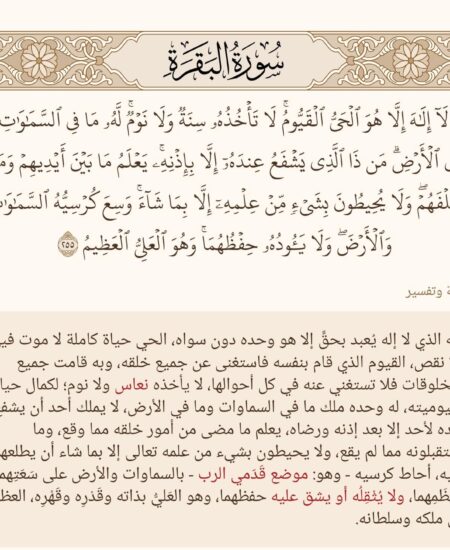 سُورَةُ البَقَرَةِ
لَآ إِلَٰهَ إِلَّا هُوَ ٱلْحَىُّ ٱلْقَيُّومُ ۚ لَا تَأْخُذُهُۥ سِنَةٌ وَلَا نَوْمٌ ۚ لَّهُۥ مَا فِى ٱلسَّمَٰوَٰتِ
ٱلْأَرْضِ ۗ مَن ذَا ٱلَّذِى يَشْفَعُ عِندَهُۥٓ إِلَّا بِإِذْنِهِۦ ۚ يَعْلَمُ مَا بَيْنَ أَيْدِيهِمْ
وَلَا يُحِيطُونَ بِشَىْءٍ مِّنْ عِلْمِهِۦٓ إِلَّا بِمَا شَآءَ ۚ وَسِعَ كُرْسِيُّهُ ٱلسَّمَٰوَٰ
وَٱلْأَرْضَ ۖ وَلَا يَـُٔودُهُۥ حِفْظُهُمَا ۚ وَهُوَ ٱلْعَلِىُّ ٱلْعَظِيمُ ٢٥٥
وتفسير
الذي لا إله يُعبد بحقٍّ إلا هو وحده دون سواه، الحي حياة كاملة لا موت
نقص، القيوم الذي قام بنفسه فاستغنى عن جميع خلقه، وبه قامت جميع
فلا تستغني عنه في كل أحوالها، لا يأخذه نعاس ولا نوم؛ لكمال
له وحده ملك ما في السماوات وما في الأرض، لا يملك أحد أن
لأحد إلا بعد إذنه ورضاه، يعلم ما مضى من أمور خلقه مما وقع، وما
مما لم يقع، ولا يحيطون بشيء من علمه تعالى إلا بما شاء أن
أحاط كرسيه - وهو: موضع قَدَمي الرب - بالسماوات والأرض على
ولا يُثْقِلُه أو يشق عليه حفظهما، وهو العَليُّ بذاته وقَدْرِه وقَهْرِه،
ملكه وسلطانه.